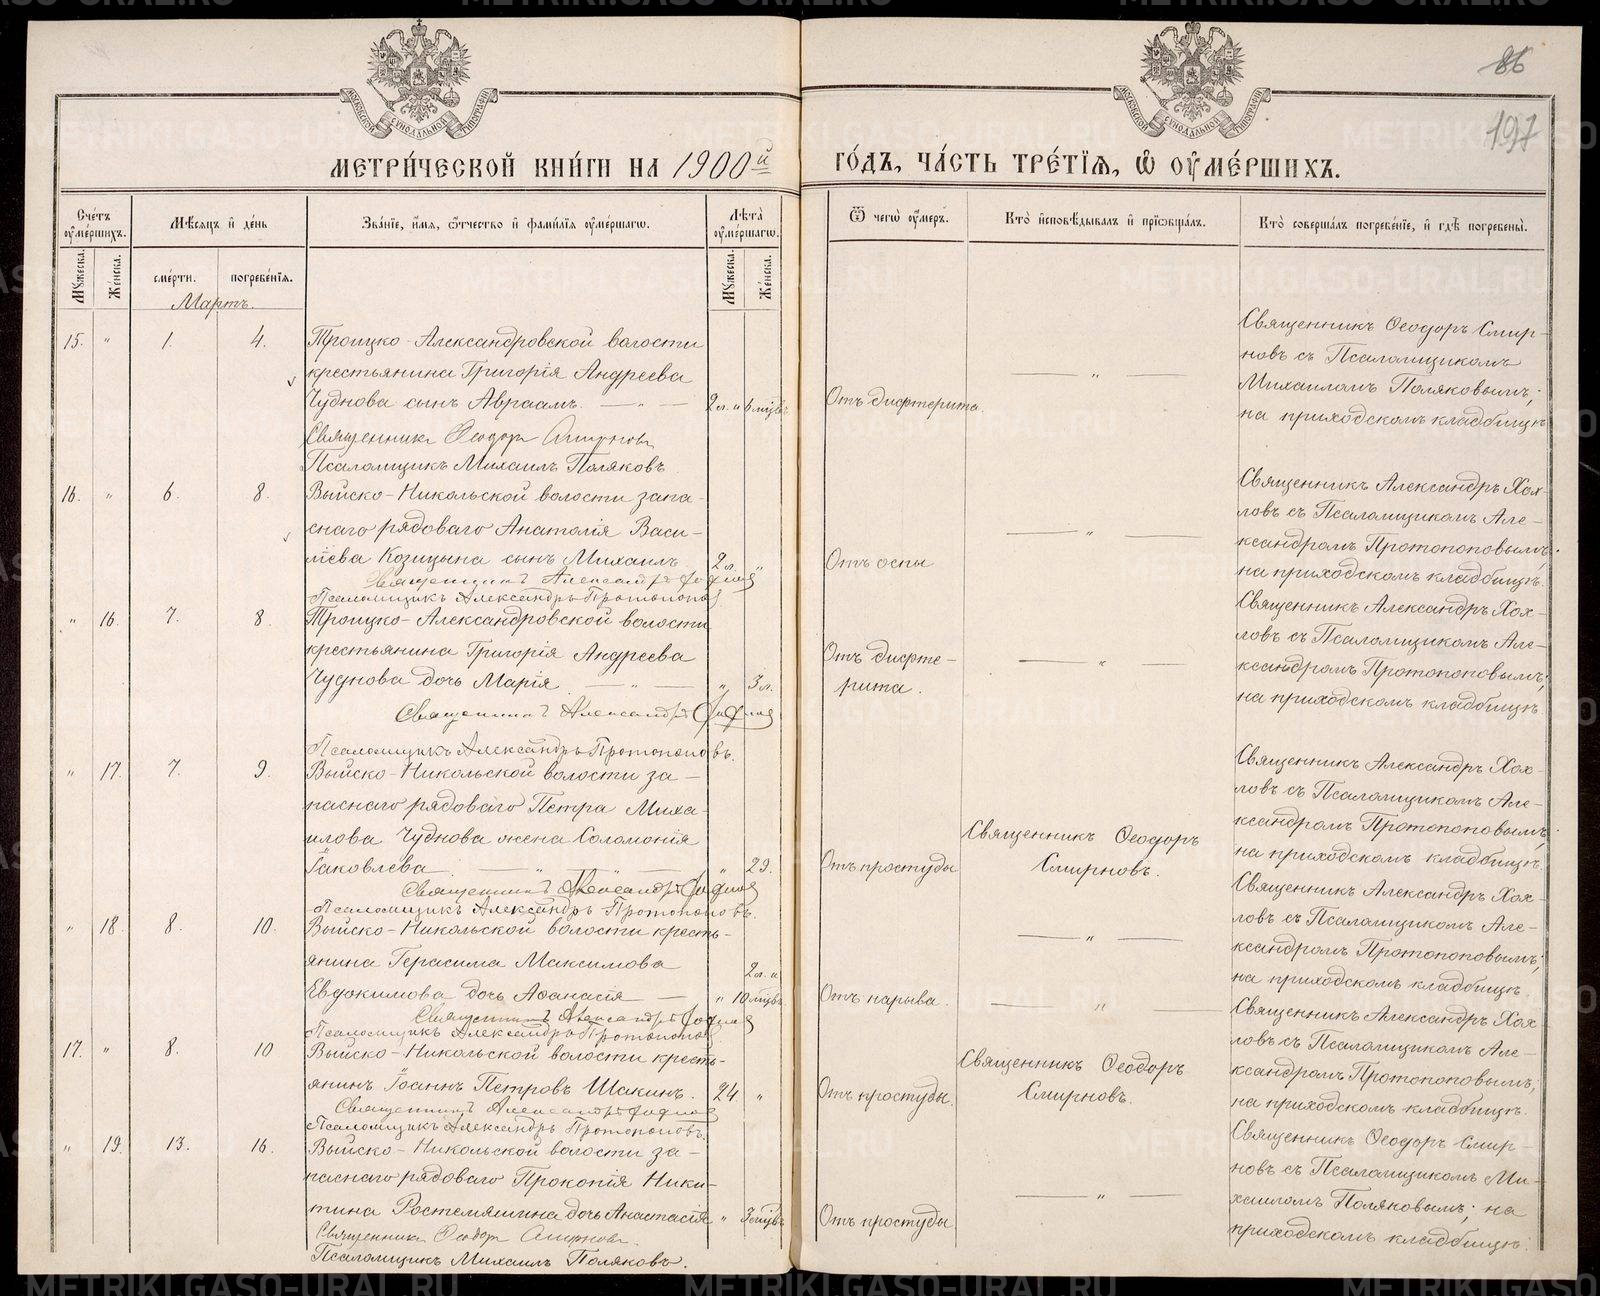 86
197
МЕТРИ́ЧЕСКОЙ КНИ́ГИ НА 1900й ГО́ДЪ, ЧА́СТЬ ТРЕ́ТІѦ, Ѡ ОУ҆МЕ́РШИХЪ.
Сче́тъ оу҆ме́ршихъ.
Мѣ́сяцъ и де́нь
Зва́нїе, и́мя, ѻ҆́тчество и фами́лїя оу҆ме́ршагѡ.
Лѣ́та оу҆ме́ршагѡ.
Ѿ чегѡ̀ оу҆́меръ.
Кто̀ и҆сповѣ́дывалъ и прїѡбща́лъ.
Кто̀ соверша́лъ погребе́нїе, и гдѣ̀ погребены̀.
Мꙋ́жеска.
Же́нска.
сме́рти.
погребе́нїя.
Мꙋ́жеска.
Же́нска.
Мартъ.
15. " 1. 4.
Троицко-Александровской волости
крестьянина Григорія Андреева
Чуднова сынъ Авраамъ. — " — 2 л. и 6 мцвъ
Священникъ Ѳеодоръ Смирновъ
Псаломщикъ Михаилъ Поляковъ.
Отъ дифтерита.
— " —
Священникъ Ѳеодоръ Смир-
новъ съ Псаломщикомъ
Михаиломъ Поляковымъ;
на приходскомъ кладбищѣ
16. " 6. 8.
Выйско-Никольской волости запа-
снаго рядоваго Анатолія Васи-
ліева Козицына сынъ Михаилъ 2 л. "
Священникъ Александръ Хохлов
Псаломщикъ Александръ Протопопов
Отъ оспы
— " —
Священникъ Александръ Хох-
ловъ съ Псаломщикомъ Але-
ксандромъ Протопоповымъ;
на приходскомъ кладбищѣ.
" 16. 7. 8.
Троицко-Александровской волости
крестьянина Григорія Андреева
Чуднова дочь Марія. — " — " 3 л.
Священникъ Александръ Хохлов
Псаломщикъ Александръ Протопоповъ.
Отъ дифте-
рита.
— " —
Священникъ Александръ Хох-
ловъ съ Псаломщикомъ Але-
ксандромъ Протопоповымъ;
на приходскомъ кладбищѣ
" 17. 7. 9.
Выйско-Никольской волости за-
паснаго рядоваго Петра Миха-
илова Чуднова жена Соломонія
Іаковлева. — " — " — " 29.
Священникъ Александръ Хохлов
Псаломщикъ Александръ Протопоповъ.
Отъ простуды
Священникъ Ѳеодоръ
Смирновъ.
Священникъ Александръ Хох-
ловъ съ Псаломщикомъ Але-
ксандромъ Протопоповымъ;
на приходскомъ кладбищѣ.
" 18. 8. 10.
Выйско-Никольской волости кресть-
янина Герасима Максимова
Евдокимова дочь Аѳанасія — " 2 л. и 10 мцвъ
Священникъ Александръ Хохлов
Псаломщикъ Александръ Протопопов
Отъ нарыва.
— " —
— " —
Священникъ Александръ Хох-
ловъ съ Псаломщикомъ Але-
ксандромъ Протопоповымъ;
на приходскомъ кладбищѣ.
17. " 8. 10
Выйско-Никольской волости кресть-
янинъ Іоаннъ Петровъ Шакинъ. 24 "
Священникъ Александръ Хохлов
Псаломщикъ Александръ Протопоповъ.
Отъ простуды.
Священникъ Ѳеодоръ
Смирновъ.
Священникъ Александръ Хох
ловъ съ Псаломщикомъ Але-
ксандромъ Протопоповымъ;
на приходскомъ кладбищѣ.
" 19. 13. 16.
Выйско-Никольской волости за-
паснаго рядоваго Прокопія Ники-
тина Ростемяшина дочь Анастасія " 3 мцвъ
Священникъ Ѳеодоръ Смирновъ.
Псаломщикъ Михаилъ Поляковъ.
Отъ простуды
— " —
Священникъ Ѳеодоръ Смир-
новъ съ Псаломщикомъ Ми-
хаиломъ Поляковымъ; на
приходскомъ кладбищѣ.
METRIKI.GASO-URAL.RU